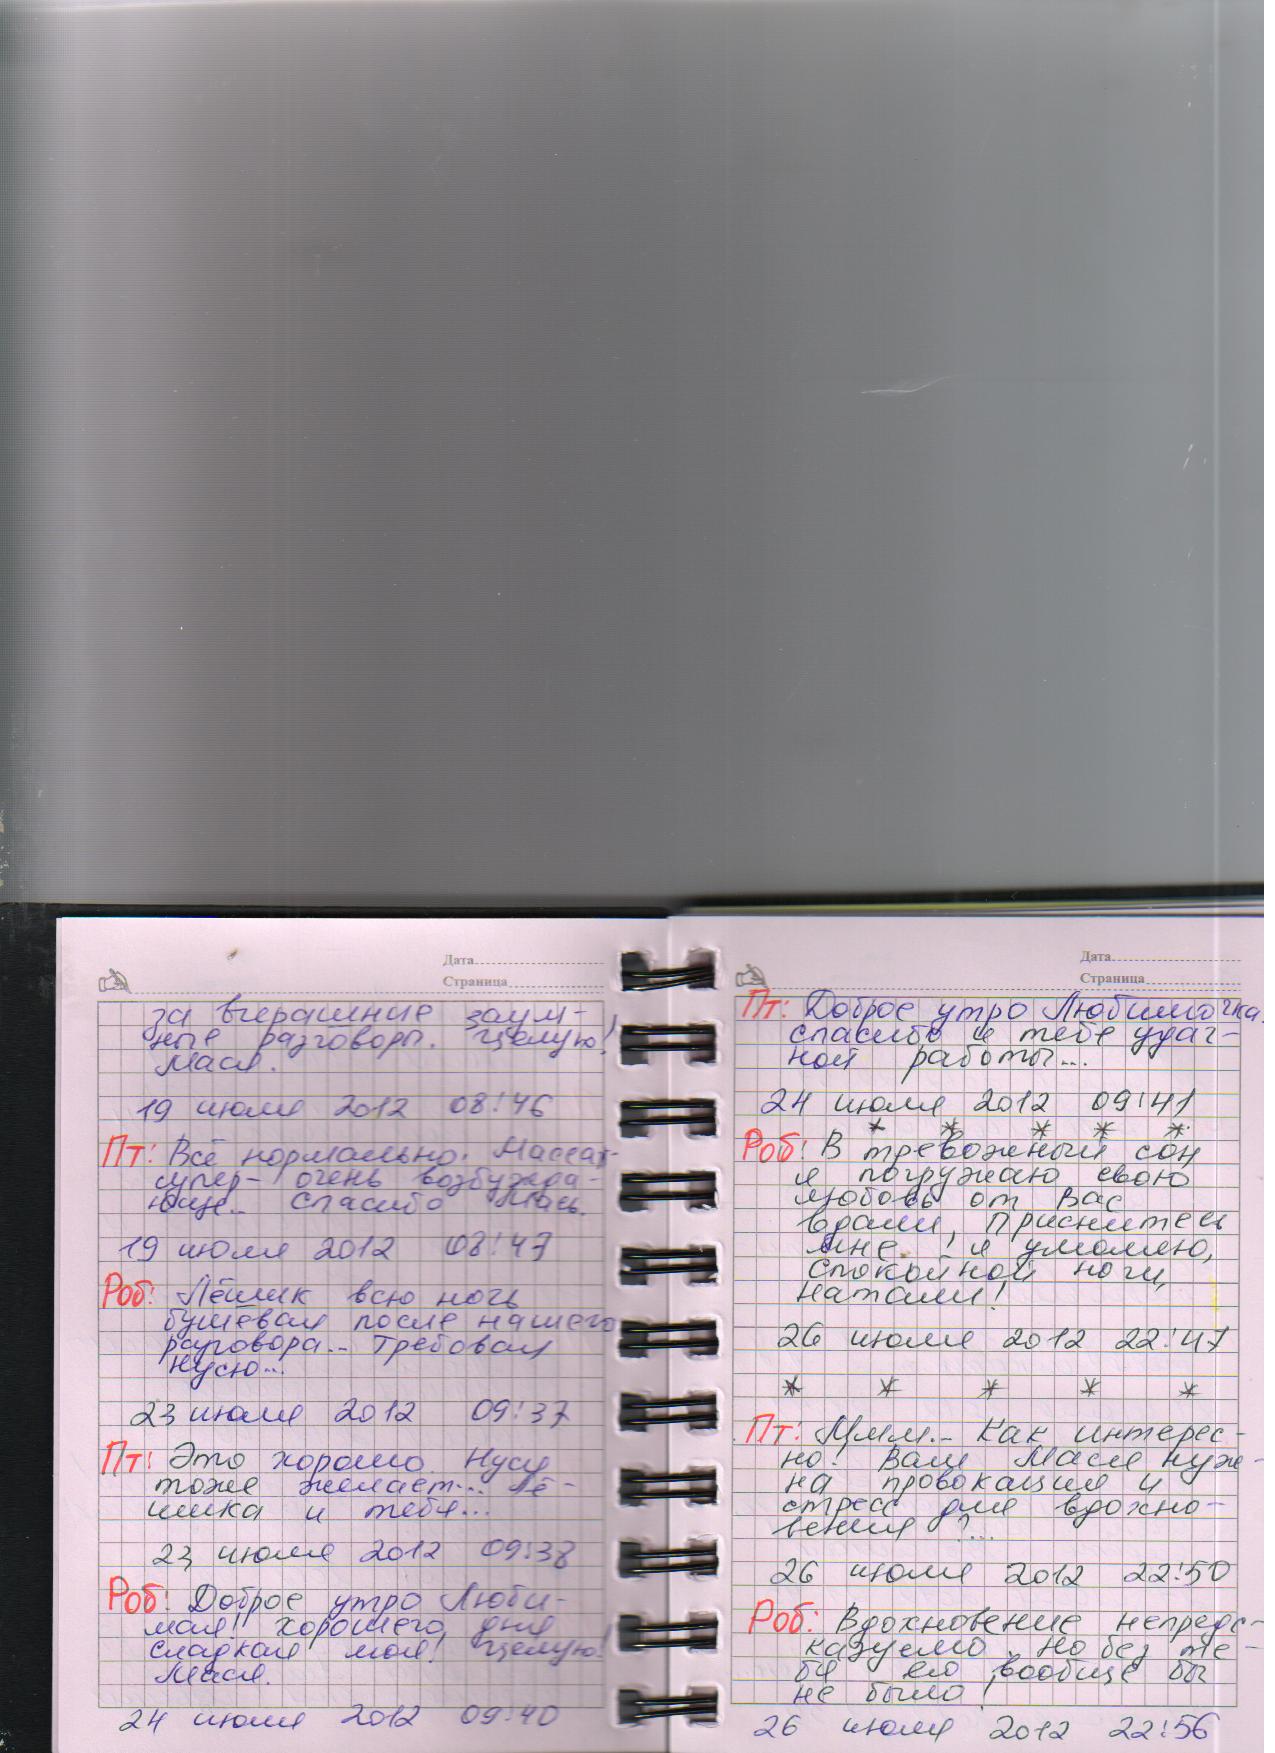 Дата
Страница
за вчерашние заум-
ные разговоры. Целую!
Мася.
19 июля 2012 08:46
Пт: Всё нормально. Массаж-
супер- очень возбужда-
юще.. Спасибо Мась.
19 июля 2012 08:47
Роб: Лёшик всю ночь
бушевал после нашего
разговора... Требовал
Нусю...
23 июля 2012 09:37
Пт: Это хорошо Нуся
тоже желает... Лё-
шика и тебя...
23 июля 2012 09:38
Роб: Доброе утро Люби-
мая! хорошего дня
сладкая моя! Целую!
Мася.
24 июля 2012 09:40
Дата
Страница
Пт: Доброе утро Любимочка
спасибо и тебе удач-
ной работы...
24 июля 2012 09:41
* * * * *
Роб: В тревожный сон
я погружаю свою
любовь от Вас
вдали, Приснитесь
мне я умоляю,
спокойной ночи,
Натали!
26 июля 2012 22:47
* * * * *
Пт: Ммм.. Как интерес-
но! Вам Мася нуж-
на провокация и
стресс для вдохно-
вения ?...
26 июля 2012 22:50
Роб: Вдохновение непредс-
казуемо. Но без те-
бя его вообще бы
не было!
26 июля 2012 22:56